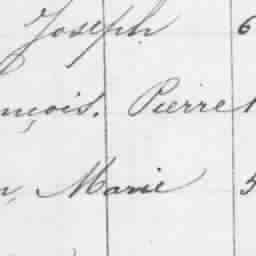 Joseph 6
nçois. Pierre 1
n, Marie 5